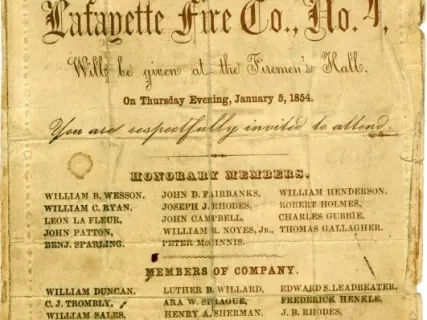 Lafayette Fire Co., No. 4,
Will be given at the Firemen's Hall.
On Thursday Evening, January 5, 1854.
You are respectfully invited to attend.
HONORARY MEMBERS.
WILLIAM B. WESSON, JOHN D. FAIRBANKS, WILLIAM HENDERSON,
WILLIAM C. RYAN, JOSEPH J. RHODES, ROBERT HOLMES,
LEON LA FLEUR, JOHN CAMPBELL, CHARLES GUBBIE,
JOHN PATTON, WILLIAM R. NOYES, JR., THOMAS GALLAGHER.
BENJ. SPARLING, PETER McGINNIS.
MEMBERS OF COMPANY.
WILLIAM DUNCAN, LUTHER B. WILLARD, EDWARD S. LEADBEATER,
C. J. TROMBLY, ARA W. SPRAGUE, FREDERICK HENKLE,
WILLIAM SALES, HENRY A. SHERMAN, J. B. RHODES,